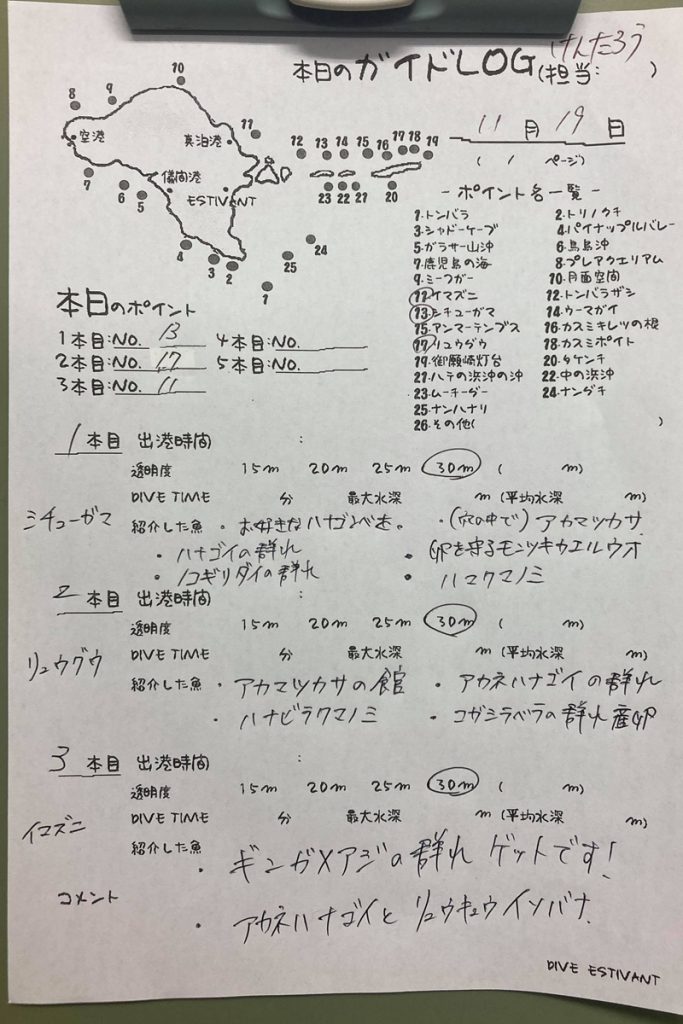 本日のガイドLOG (担当: けんたろう )
11 月 19 日
( / ページ)
10
9
8
空港
真泊港
11
12 13 14 15 16 17 18 19
儀間港
ESTIVANT
23 22 21 20
7
6
5
4
3
2
1
25
24
- ポイント名一覧 -
1.トンバラ 2.トリノクチ
3.シャドーケーブ 4.パイナップルバレー
5.ガラサー山沖 6.鳥島沖
7.鹿児島の海 8.プレアクエリアム
9.ミーフガー 10.月面空間
11.イマズニ 12.トンバラザシ
13.シチューガマ 14.ウーマガイ
15.アンマーテンブス 16.カスミキレツの根
17.リュウグウ 18.カスミポイント
19.御願崎灯台 20.タケンチ
21.ハテの浜沖の沖 22.中の浜沖
23.ムーチーダー 24.ナングチ
25.ナンハナリ
26.その他( )
本日のポイント
1本目:NO. 13 4本目:NO.
2本目:NO. 17 5本目:NO.
3本目:NO. 11
1 本目 出港時間 :
透明度 15m 20m 25m 30m ( m)
DIVE TIME 分 最大水深 m (平均水深 m)
シチューガマ 紹介した魚 ・お好きなハナゴンベを。 ・(穴の中で)アカマツカサ
・ハナゴイの群れ ・卵を守るモンツキカエルウオ
・ノコギリダイの群れ ・ハマクマノミ
2 本目 出港時間 :
透明度 15m 20m 25m 30m ( m)
DIVE TIME 分 最大水深 m (平均水深 m)
リュウグウ 紹介した魚 ・アカマツカサの館 ・アカネハナゴイの群れ
・ハナビラクマノミ ・コガシラベラの群れ産卵
3 本目 出港時間 :
透明度 15m 20m 25m 30m ( m)
DIVE TIME 分 最大水深 m (平均水深 m)
イマズニ 紹介した魚 ・ギンガメアジの群れ ゲットです!
コメント ・アカネハナゴイとリュウキュウイソバナ
DIVE ESTIVANT